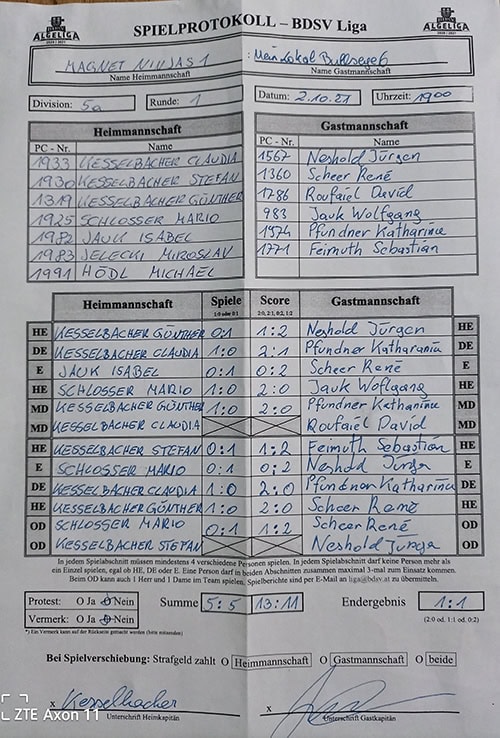 SPIELPROTOKOLL – BDSV Liga
ALGELIGA
ALGELIGA
MAGNET NINJAS 1
Mein Lokal Bullseye 6
Name Heimmannschaft
Name Gastmannschaft
Division: 5a Runde: 1 Datum: 2.10.21 Uhrzeit: 1900
Heimmannschaft
Gastmannschaft
PC - Nr. Name PC - Nr. Name
1933 KESSELBACHER CLAUDIA 1567 Neshold Jürgen
1930 KESSELBACHER STEFAN 1360 Scheer René
1319 KESSELBACHER GÜNTHER 1786 Roufaiel David
1925 SCHLOSSER MARIO 983 Jauk Wolfgang
1982 JAUK ISABEL 1974 Pfundner Katharina
1983 JELECKI MIROSLAV 1771 Feimuth Sebastian
1991 HÖDL MICHAEL
Heimmannschaft Spiele Score Gastmannschaft
1:0 oder 0:1 2:0, 2:1, 0:2, 1:2
HE KESSELBACHER GÜNTHER 0:1 1:2 Neshold Jürgen HE
DE KESSELBACHER CLAUDIA 1:0 2:1 Pfundner Katharina DE
E JAUK ISABEL 0:1 0:2 Scheer René E
HE SCHLOSSER MARIO 1:0 2:0 Jauk Woflgang HE
MD KESSELBACHER GÜNTHER 1:0 2:0 Pfundner Katharina MD
MD KESSELBACHER CLAUDIA Roufaiel David MD
HE KESSELBACHER STEFAN 0:1 1:2 Feimuth Sebastian HE
E SCHLOSSER MARIO 0:1 0:2 Neshold Jürgen E
DE KESSELBACHER CLAUDIA 1:0 2:0 Pfundner Katharina DE
HE KESSELBACHER GÜNTHER 1:0 2:0 Scheer René HE
OD SCHLOSSER MARIO 0:1 1:2 Scheer René OD
OD KESSELBACHER STEFAN Neshold Jürgen OD
In jedem Spielabschnitt müssen mindestens 4 verschiedene Personen spielen. In jedem Spielabschnitt darf keine Person mehr als
ein Einzel spielen, egal ob HE, DE oder E. Eine Person darf in beiden Abschnitten zusammen maximal 3-mal zum Einsatz kommen.
Beim OD kann auch 1 Herr und 1 Dame im Team spielen. Spielberichte sind per E-Mail an liga@bdsv.at zu übermitteln.
Protest: O Ja O Nein Summe 5:5 13:11 Endergebnis 1:1
Vermerk: O Ja O Nein (2:0 od. 1:1 od. 0:2)
*) Ein Vermerk kann auf der Rückseite gemacht werden (bitte ankreuzen)
Bei Spielverschiebung: Strafgeld zahlt O Heimmannschaft O Gastmannschaft O beide
x Kesselbacher x
Unterschrift Heimkapitän Unterschrift Gastkapitän
ZTE Axon 11